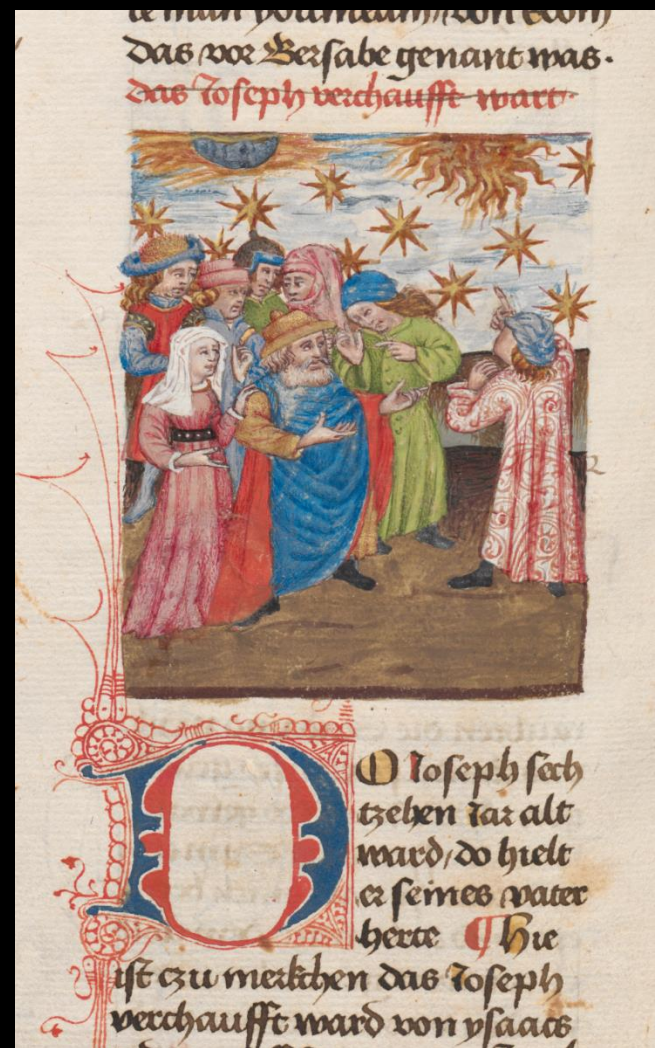 das vor Bersabe genant was.
das Joseph verchaufft wart.
DO Joseph sech
tzehen Jar alt
ward / do hielt
er seines vater
herte ¶ Hie
ist czu merkchen das Joseph
verchaufft ward von ysaacs